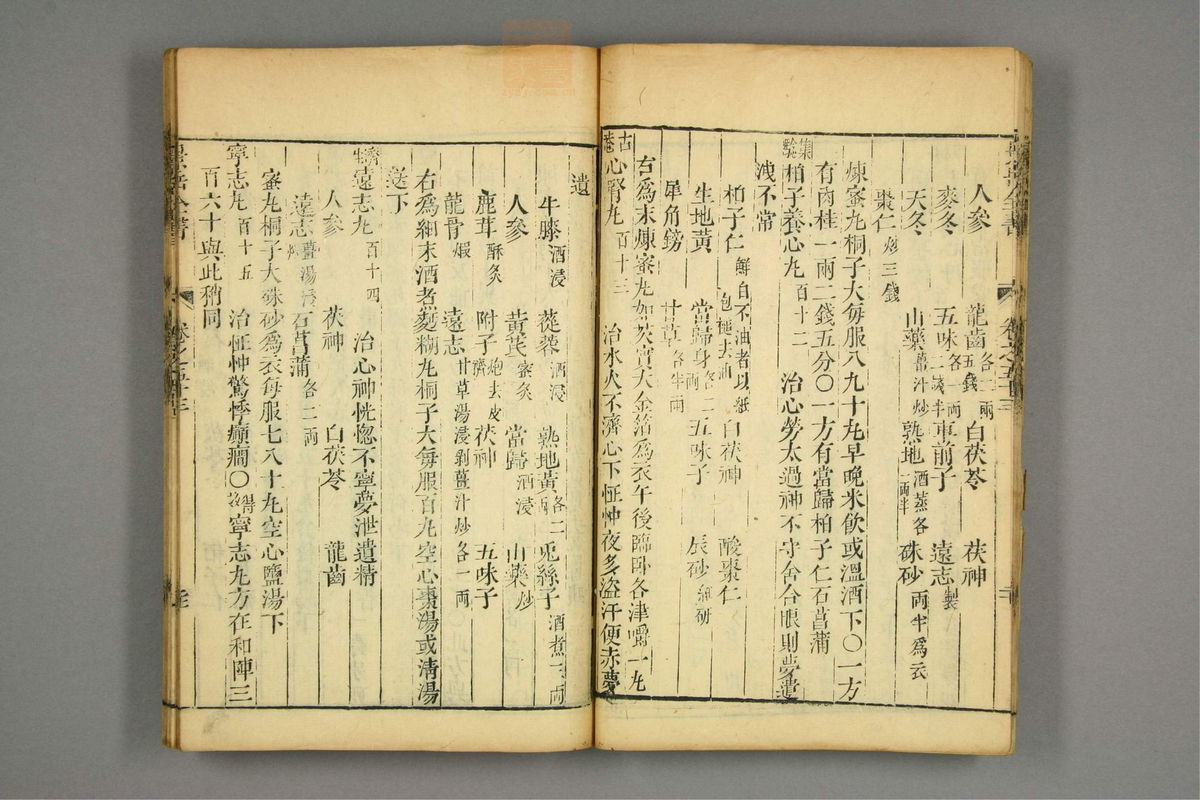 人參 龍齒各二兩五錢 白茯苓 茯神
麥冬 五味各二錢半 車前子 遠志製
天冬 山藥薑汁炒 熟地酒蒸各一兩半 硃砂兩半為衣
棗仁炒三錢
煉蜜丸桐子大每服八九十丸早晚米飲或溫酒下〇一方
有肉桂一兩二錢五分〇一方有當歸柏子仁石菖蒲
集驗柏子養心丸百十二 治心勞太過神不守舍合眼則夢遺
洩不常
柏子仁鮮白不油者以紙包搥去油 白茯神 酸棗仁
生地黃 當歸身各二兩 五味子 辰砂細研
犀角鎊 甘草各半兩
右為末煉蜜丸如芡實大金箔為衣午後臨臥各津嚼一丸
古菴心腎丸百十三 治水火不濟心下怔忡夜多盜汗便赤夢
遺
牛膝酒浸 蓯蓉酒浸 熟地黃各二兩 兎絲子酒煮三兩
人參 黃芪蜜炙 當歸酒浸 山藥炒
鹿茸酥炙 附子炮去皮臍 茯神 五味子
龍骨煆 遠志甘草湯浸剝薑汁炒各一兩
右為細末酒煮麪糊丸桐子大每服百丸空心棗湯或清湯
送下
濟生遠志丸百十四 治心神恍惚不寧夢泄遺精
人參 茯神 白茯苓 龍齒
遠志薑湯浸炒 石菖蒲各二兩
蜜丸桐子大硃砂為衣每服七八十丸空心鹽湯下
寧志丸百十五 治怔忡驚悸癲癇〇得效寧志丸方在和陣三
百六十與此稍同